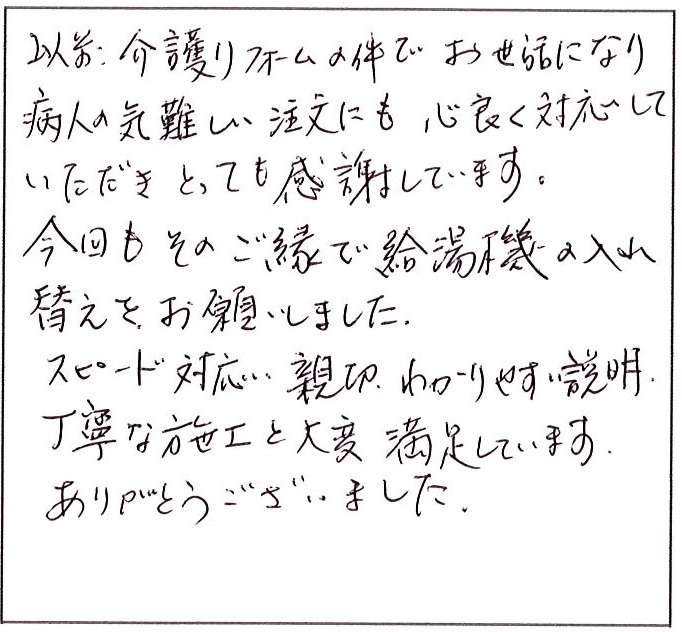 以前、介護リフォームの件で お世話になり
病人の気難しい注文にも 心良く対応して
いただき とっても感謝しています。
今回も そのご縁で給湯機の入れ
替えを、お願いしました。
スピード対応、親切、わかりやすい説明、
丁寧な施工と大変 満足しています。
ありがとうございました。